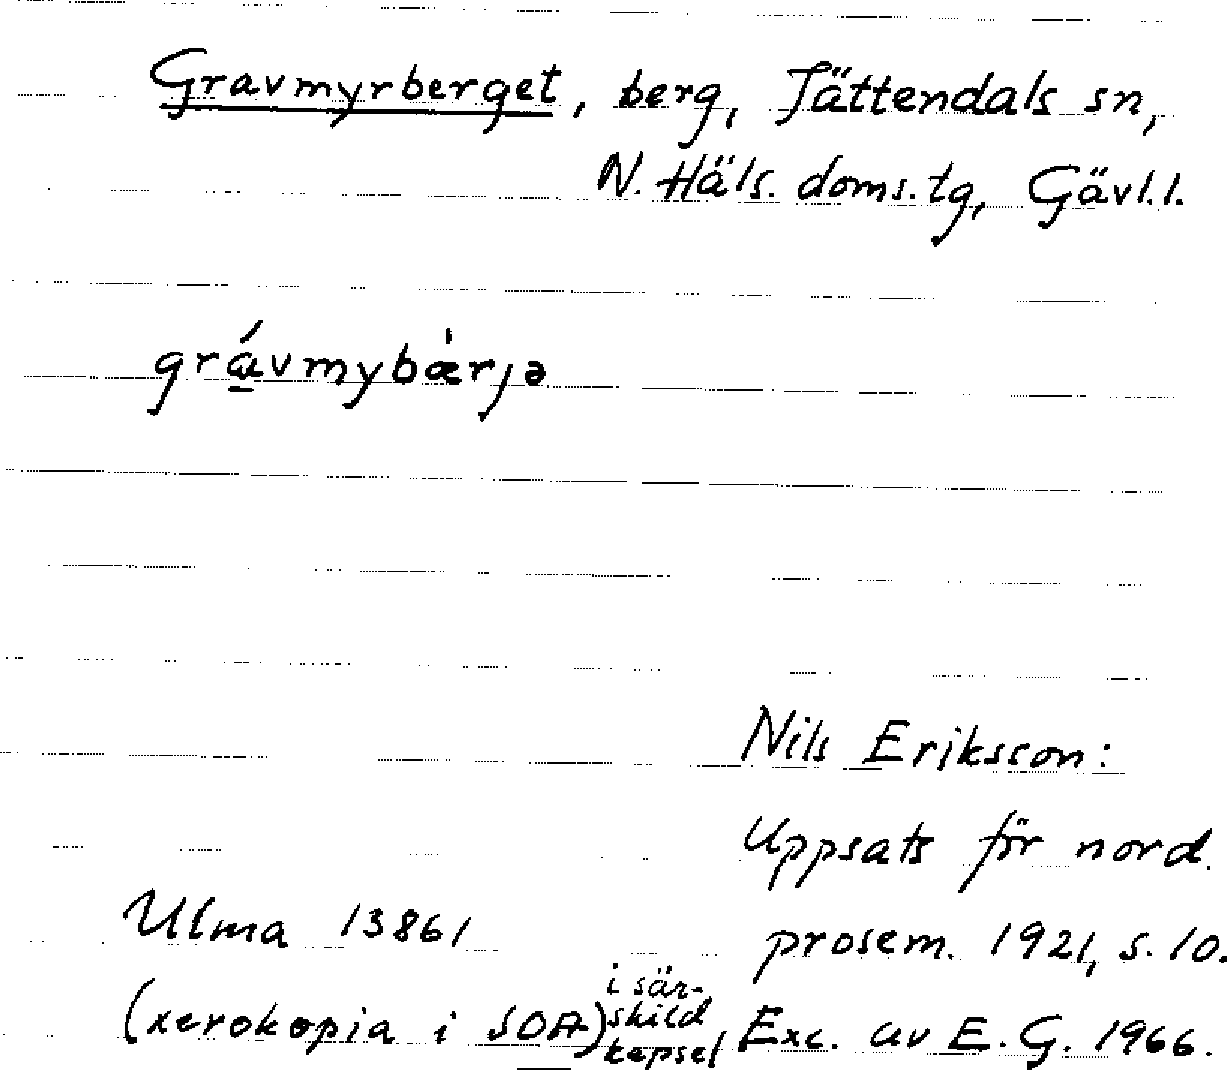 Gravmyrberget, berg, Jättendals sn,
N. Häls. doms. tg, Gävl. l.
grávmybær̀jə
Nils Eriksson:
Uppsats för nord.
prosem. 1921, s. 10.
Ulma 13861
(xerokopia i SOA) i sär-
skild
kapsel
Exc. av E. G. 1966.